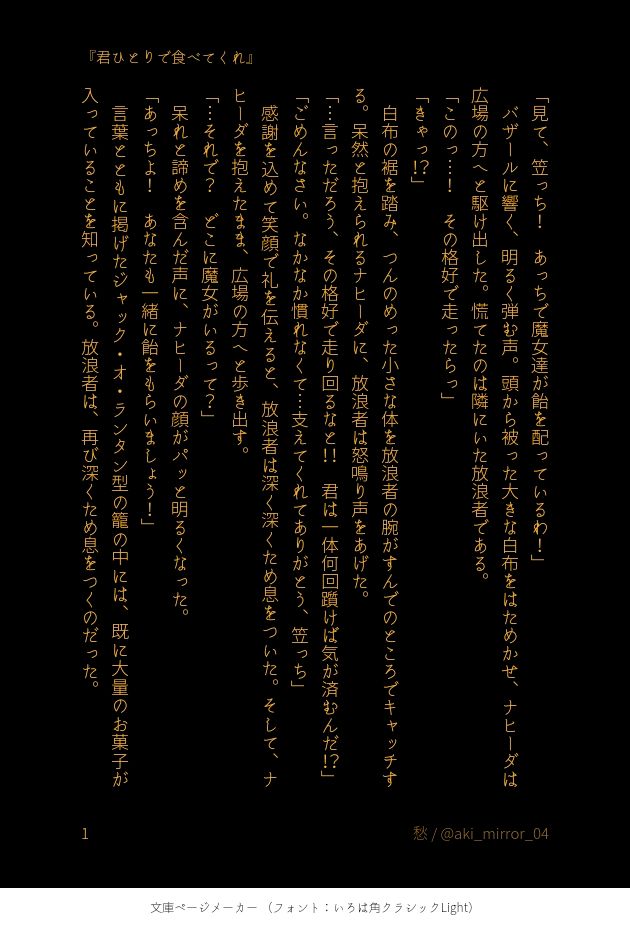 『君ひとりで食べてくれ』
「見て、笠っち！　あっちで魔女達が飴を配っているわ！」
　バザールに響く、明るく弾む声。頭から被った大きな白布をはためかせ、ナヒーダは
広場の方へと駆け出した。慌てたのは隣にいた放浪者である。
「このっ…！　その格好で走ったらっ」
「きゃっ!?」
　白布の裾を踏み、つんのめった小さな体を放浪者の腕がすんでのところでキャッチす
る。呆然と抱えられるナヒーダに、放浪者は怒鳴り声をあげた。
「…言っただろう、その格好で走り回るなと!!　君は一体何回躓けば気が済むんだ!?」
「ごめんなさい。なかなか慣れなくて…支えてくれてありがとう、笠っち」
　感謝を込めて笑顔で礼を伝えると、放浪者は深く深くため息をついた。そして、ナ
ヒーダを抱えたまま、広場の方へと歩き出す。
「…それで？　どこに魔女がいるって？」
　呆れと諦めを含んだ声に、ナヒーダの顔がパッと明るくなった。
「あっちよ！　あなたも一緒に飴をもらいましょう！」
　言葉とともに掲げたジャック・オ・ランタン型の籠の中には、既に大量のお菓子が
入っていることを知っている。放浪者は、再び深くため息をつくのだった。
1
愁 / @aki_mirror_04
文庫ページメーカー （フォント：いろは角クラシックLight）